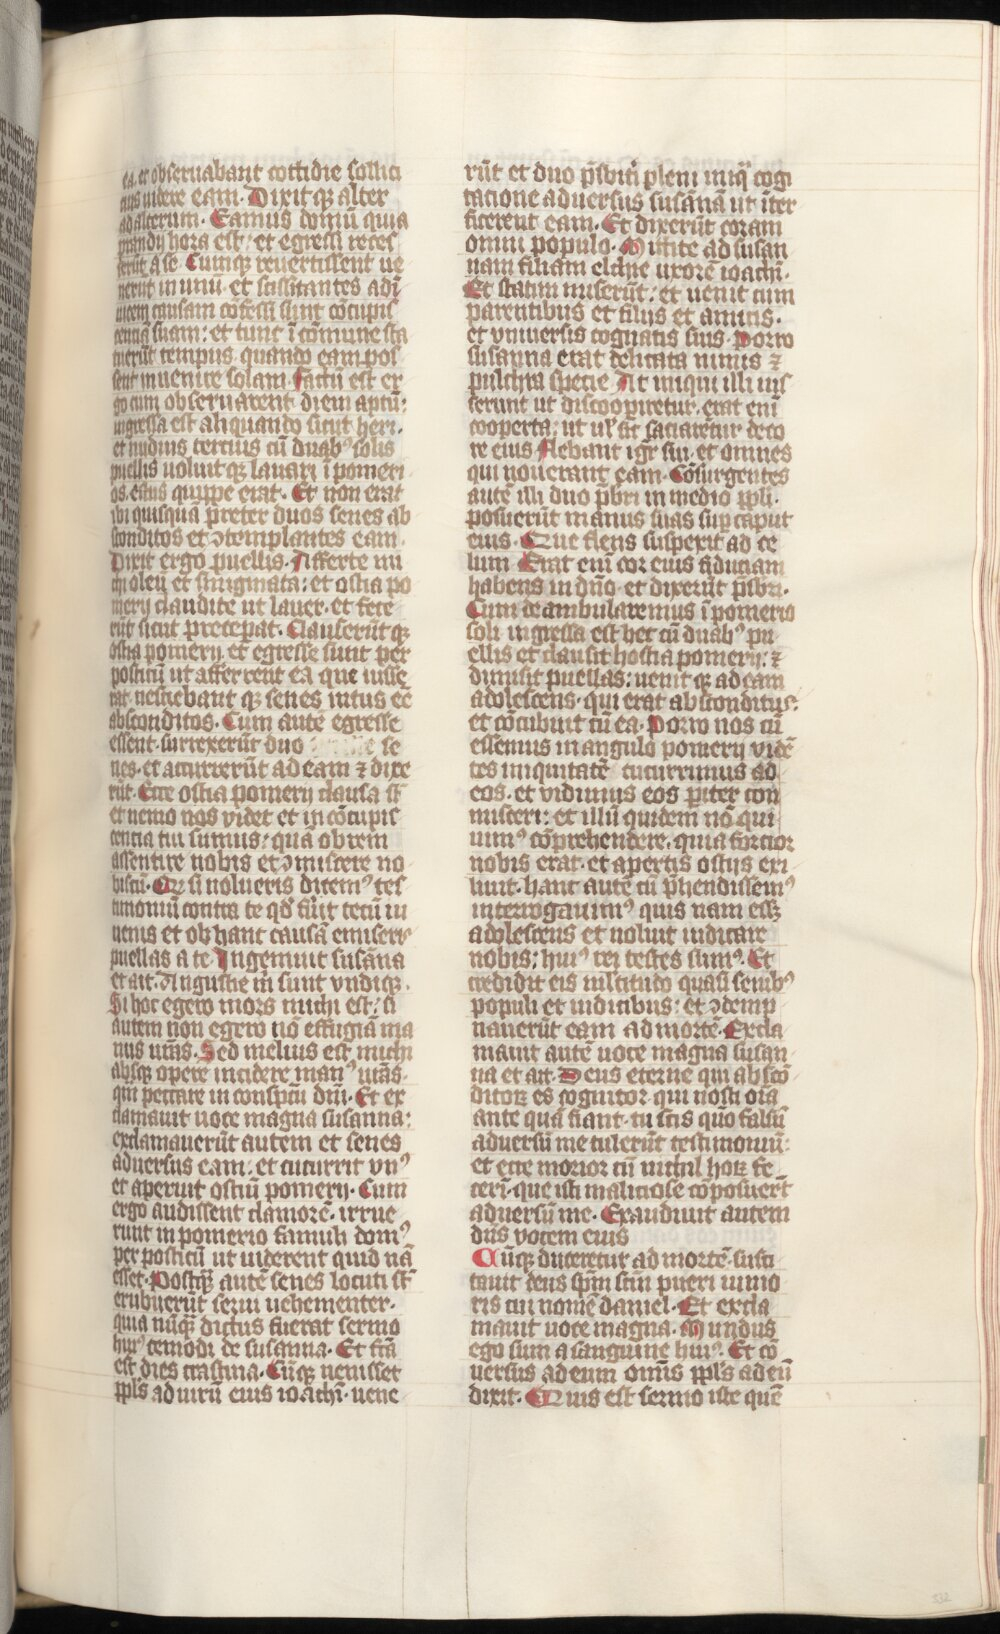 ea. et obseruabant cottidie sollici
cius uidere eam. Dixit qz alter
ad alterum. Eamus domū quia
prandij hora est: et egressi reces
serūt a se. Cumqz reuertissent ue
nerūt in unū. et sciscitantes adī
uicem causam cōfessi sunt cōcupis
cenciā suam: et tunc ī cōmune sta
tuerūt tempus quando eam pos
sent inuenire solam. Factū est er
go cum obseruarent diem aptū:
ingressa est aliquando sicut heri.
et nudius tercius cū duabꝰ solis
puellis uoluit qz lauari ī pomeri
o. estus quippe erat. Et non erat
ibi quisquā preter duos senes ab
sconditos et ꝯtemplantes eam.
Dixit ergo puellis. Afferte mi
chi oleū et smigmata: et ostia po
merij claudite ut lauer. et fece
rūt sicut preceperat. Clauserūt qz
ostia pomerij. et egresse sunt per
posticū ut afferrent ea que iusse
rat. nesciebant qz senes intus eē
absconditos. Cum autē egresse
essent. surrexerūt duo se
nes. et accurrerūt ad eam ⁊ dixe
rūt. Ecce ostia pomerij clausa st̄
et nemo nos videt et in cōcupis
cencia tui sumus: quā obrem
assentire nobis et ꝯmiscere no
biscū. Qz si nolueris dicemꝰ tes
timoniū contra te qd̄ fūit tecū iu
uenis et ob hanc causā emiseris
puellas a te Ingemuit susāna
et ait. Angustie m̄ sunt vndiqz.
Si hoc egero mors michi est: si
autem non egero nō effugiā ma
nus ur̄as. Sed melius est michi
absqz opere incidere manꝰ ur̄as.
qm̄ peccare in conspectu dn̄i. Et ex
clamauit uoce magna susanna:
exclamauerūt autem et senes
aduersus eam. et cucurrit vnꝰ
et aperuit ostiū pomerij. Cum
ergo audissent clamorē. irrue
runt in pomerio famuli domꝰ
per posticū ut uiderent quid nā
esset. Postqz autē senes locuti st̄
erubuerūt serui uehementer.
quia nūqz dictus fuerat sermo
huꝰcemodi de susanna. Et fc̄a
est dies crastina. Cūqz uenisset
ppl̄s ad uirū eius ioachī. uene
rūt et duo p̄sbiti pleni iniq̄ cogi
tacione aduersus susānā ut īter
ficerent eam. Et dixerūt coram
omni populo. Mittite ad susan
nam filiam elchie uxorē ioachī.
Et statim miserūt: et uenit cum
parentibus et filijs et amicis.
et vniuersis cognatis suis. Porro
susanna erat delicata nimis ⁊
pulchra specie At iniqui illi ius
serunt ut discooperiretur. erat eni
cooperta: ut ul̄ sic saciarētur deco
re eius Flebant igr̄ sui. et omnes
qui nouerant eam. Cōsurgentes
autē illi duo p̄bri in medio ppl̄i.
posuerūt manus suas sup caput
eius. Que flens suspexit ad ce
lum Erat eni cor eius fiduciam
habens in dn̄o. et dixerūt p̄sbri.
Cum deambularemus ī pomerio
soli ingressa est hec cū duabꝰ pu
ellis et clausit hostia pomerij: ⁊
dimisit puellas: uenit qz ad eam
adolescens. qui erat absconditus:
et cōcubuit cū ea. Porro nos cū
essemus in angulo pomerij vidē
tes iniquitatē cucurrimus ad
eos. et vidimus eos p̄iter com
misceri: et illū quidem nō qui
uimꝰ cōprehendere. quia forcior
nobis erat. et apertis ostijs exi
liuit. hanc autē cū p̄hendissemꝰ
interrogauimꝰ quis nam essz
adolescens et noluit indicare
nobis: huiꝰ rei testes sumꝰ. Et
credidit eis multitudo quasi senibꝰ
populi et iudicibus: et ꝯdemp
nauerūt eam ad mortē. Excla
mauit autē uoce magna susan
na et ait. Deus eterne qui abscō
ditoꝝ es cognitor. qui nosti oīa
ante quā fiant. tu scis quō falsū
aduersū me tulerūt testimoniū:
et ecce morior cū nichil hoꝝ fe
ceri. que isti maliciose cōposuerūt
aduersū me. Exaudiuit autem
dn̄s vocem eius
Cūqz duceretur ad mortē. susci
tauit deus sp̄m scm̄ pueri iunio
ris cui nomē daniel. Et excla
mauit uoce magna. Mundus
ego sum a sanguine huiꝰ. Et cō
uersus ad eum omīs ppl̄s ad eū
dixit. Quis est sermo iste quē